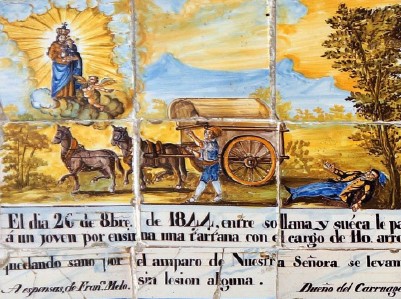 El dia 26 de 8bre. de 1844, entre sollana y suéca le pa
á un joven por ensima una tartana con el cargo de 110. arro
quedando sano por el amparo de Nuestra Señora se levan
A espensas, de Fran.co Melo. sin lesion alguna. Dueño del Carruage